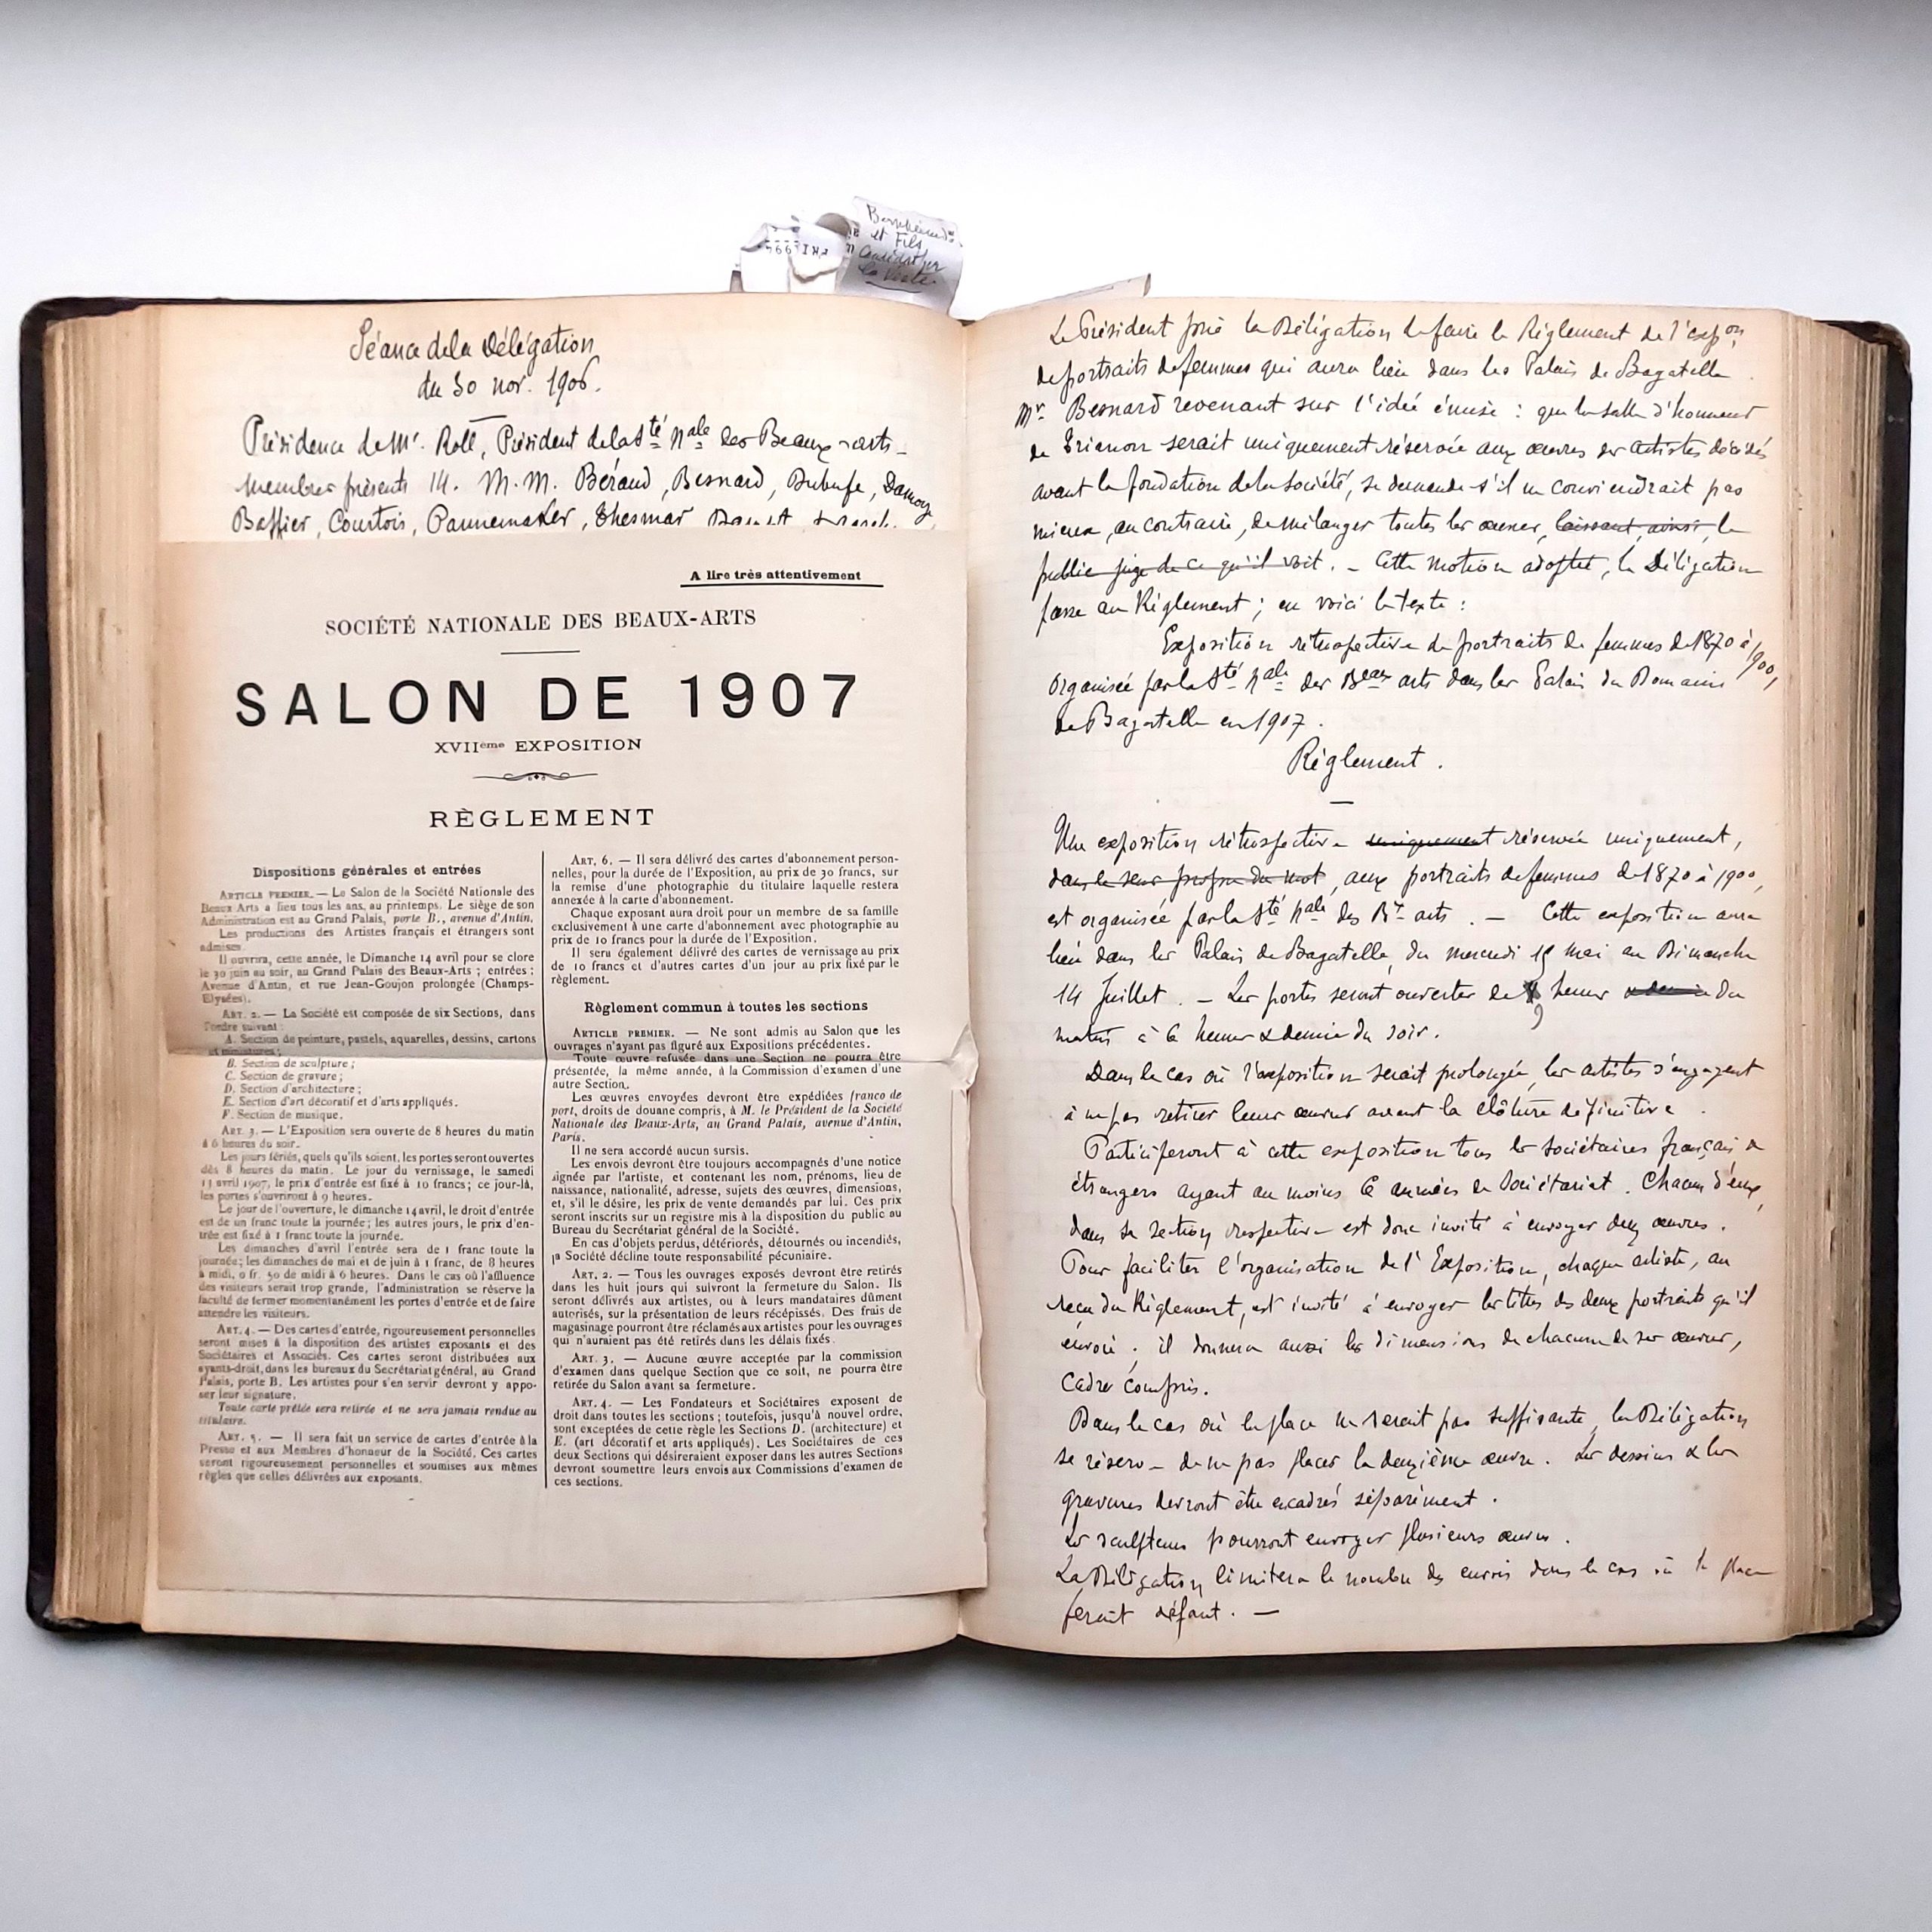 Bernheim
et Fils
Séance de la Délégation
du 30 nov. 1906.
Présidence de Mr. Roll, Président de la Sté Nale des Beaux-arts –
membres présents 14. M.M. Béraud, Besnard, Dubufe, Damoye,
Baffier, Courtois, Pannemaker, Thesmar
A lire très attentivement
SOCIÉTÉ NATIONALE DES BEAUX-ARTS
SALON DE 1907
XVIIème EXPOSITION
RÈGLEMENT
Dispositions générales et entrées
ARTICLE PREMIER. — Le Salon de la Société Nationale des
Beaux Arts a lieu tous les ans, au printemps. Le siège de son
Administration est au Grand Palais, porte B., avenue d'Antin.
Les productions des Artistes français et étrangers sont
admises.
Il ouvrira, cette année, le Dimanche 14 avril pour se clore
le 30 juin au soir, au Grand Palais des Beaux-Arts ; entrées ;
Avenue d'Antin, et rue Jean-Goujon prolongée (Champs-
Elysées).
ART. 2. — La Société est composée de six Sections, dans
l'ordre suivant :
A. Section de peinture, pastels, aquarelles, dessins, cartons
et miniatures ;
B. Section de sculpture ;
C. Section de gravure ;
D. Section d'architecture ;
E. Section d'art décoratif et d'arts appliqués.
F. Section de musique.
ART. 3. — L'Exposition sera ouverte de 8 heures du matin
à 6 heures du soir.
Les jours fériés, quels qu'ils soient, les portes seront ouvertes
dès 8 heures du matin. Le jour du vernissage, le samedi
13 avril 1907, le prix d'entrée est fixé à 10 francs ; ce jour-là,
les portes s'ouvriront à 9 heures.
Le jour de l'ouverture, le dimanche 14 avril, le droit d'entrée
est de un franc toute la journée ; les autres jours, le prix d'en-
trée est fixé à 1 franc toute la journée.
Les dimanches d'avril l'entrée sera de 1 franc toute la
journée ; les dimanches de mai et de juin à 1 franc, de 8 heures
à midi, 0 fr. 50 de midi à 6 heures. Dans le cas où l'affluence
des visiteurs serait trop grande, l'administration se réserve la
faculté de fermer momentanément les portes d'entrée et de faire
attendre les visiteurs.
ART. 4. — Des cartes d'entrée, rigoureusement personnelles
seront mises à la disposition des artistes exposants et des
Sociétaires et Associés. Ces cartes seront distribuées aux
ayants-droit, dans les bureaux du Secrétariat général, au Grand
Palais, porte B. Les artistes pour s'en servir devront y appo-
ser leur signature.
Toute carte prêtée sera retirée et ne sera jamais rendue au
titulaire.
ART. 5. — Il sera fait un service de cartes d'entrée à la
Presse et aux Membres d'honneur de la Société. Ces cartes
seront rigoureusement personnelles et soumises aux mêmes
règles que celles délivrées aux exposants.
ART. 6. — Il sera délivré des cartes d'abonnement person-
nelles, pour la durée de l'Exposition, au prix de 30 francs, sur
la remise d'une photographie du titulaire laquelle restera
annexée à la carte d'abonnement.
Chaque exposant aura droit pour un membre de sa famille
exclusivement à une carte d'abonnement avec photographie au
prix de 10 francs pour la durée de l'Exposition.
Il sera également délivré des cartes de vernissage au prix
de 10 francs et d'autres cartes d'un jour au prix fixé par le
règlement.
Règlement commun à toutes les sections
ARTICLE PREMIER. — Ne sont admis au Salon que les
ouvrages n'ayant pas figuré aux Expositions précédentes.
Toute œuvre refusée dans une Section ne pourra être
présentée, la même année, à la Commission d'examen d'une
autre Section.
Les œuvres envoyées devront être expédiées franco de
port, droits de douane compris, à M. le Président de la Société
Nationale des Beaux-Arts, au Grand Palais, avenue d'Antin,
Paris.
Il ne sera accordé aucun sursis.
Les envois devront être toujours accompagnés d'une notice
signée par l'artiste, et contenant les nom, prénoms, lieu de
naissance, nationalité, adresse, sujets des œuvres, dimensions,
et, s'il le désire, les prix de vente demandés par lui. Ces prix
seront inscrits sur un registre mis à la disposition du public au
Bureau du Secrétariat général de la Société.
En cas d'objets perdus, détériorés, détournés ou incendiés,
la Société décline toute responsabilité pécuniaire.
ART. 2. — Tous les ouvrages exposés devront être retirés
dans les huit jours qui suivront la fermeture du Salon. Ils
seront délivrés aux artistes, ou à leurs mandataires dûment
autorisés, sur la présentation de leurs récépissés. Des frais de
magasinage pourront être réclamés aux artistes pour les ouvrages
qui n'auraient pas été retirés dans les délais fixés.
ART. 3. — Aucune œuvre acceptée par la commission
d'examen dans quelque Section que ce soit, ne pourra être
retirée du Salon avant sa fermeture.
ART. 4. — Les Fondateurs et Sociétaires exposent de
droit dans toutes les sections ; toutefois, jusqu'à nouvel ordre,
sont exceptées de cette règle les Sections D. (architecture) et
E. (art décoratif et arts appliqués). Les Sociétaires de ces
deux Sections qui désireraient exposer dans les autres Sections
devront soumettre leurs envois aux Commissions d'examen de
ces sections.
Le Président prie la Délégation de faire le Règlement de l'expon
de portraits de femmes qui aura lieu dans les Palais de Bagatelle.
Mr. Besnard revenant sur l'idée émise : que la salle d'honneur
de Trianon serait uniquement réservée aux œuvres des artistes décédés
avant la fondation de la Société, se demande s'il ne conviendrait pas
mieux, au contraire, de mélanger toutes les œuvres, laissant ainsi le
public juge de ce qu'il voit. – Cette motion adoptée, la Délégation
passe au Règlement ; en voici le texte :
Exposition rétrospective de portraits de femmes de 1870 à 1900,
Organisée par la Sté Nale des Beaux arts dans les Palais du Domaine
de Bagatelle en 1907.
Règlement.
Une exposition rétrospective uniquement réservée uniquement,
dans le sens propre du mot, aux portraits de femmes de 1870 à 1900,
est organisée par la Sté Nale des Bx arts. — Cette exposition aura
lieu dans les Palais de Bagatelle, du mercredi 15 mai au Dimanche
14 Juillet. – Les portes seront ouvertes de 9 heures & demie du
matin à 6 heures & demie du soir.
Dans le cas où l'exposition serait prolongée, les artistes s'engagent
à ne pas retirer leurs œuvres avant la clôture définitive.
Participeront à cette exposition tous les sociétaires français &
étrangers ayant au moins 6 années de Sociétariat. Chacun d'eux,
dans sa section respective est donc invité à envoyer deux œuvres.
Pour faciliter l'organisation de l'Exposition, chaque artiste, au
reçu du Règlement, est invité à envoyer les titres des deux portraits qu'il
envoie ; il donnera aussi les dimensions de chacune de ses œuvres,
Cadre Compris.
Dans le cas où la place ne serait pas suffisante, la Délégation
se réserve de ne pas placer la deuxième œuvre. Les dessins & les
gravures devront être encadrés séparément.
Les sculpteurs pourront envoyer plusieurs œuvres.
La Délégation limitera le nombre des envois dans le cas où la place
ferait défaut. —